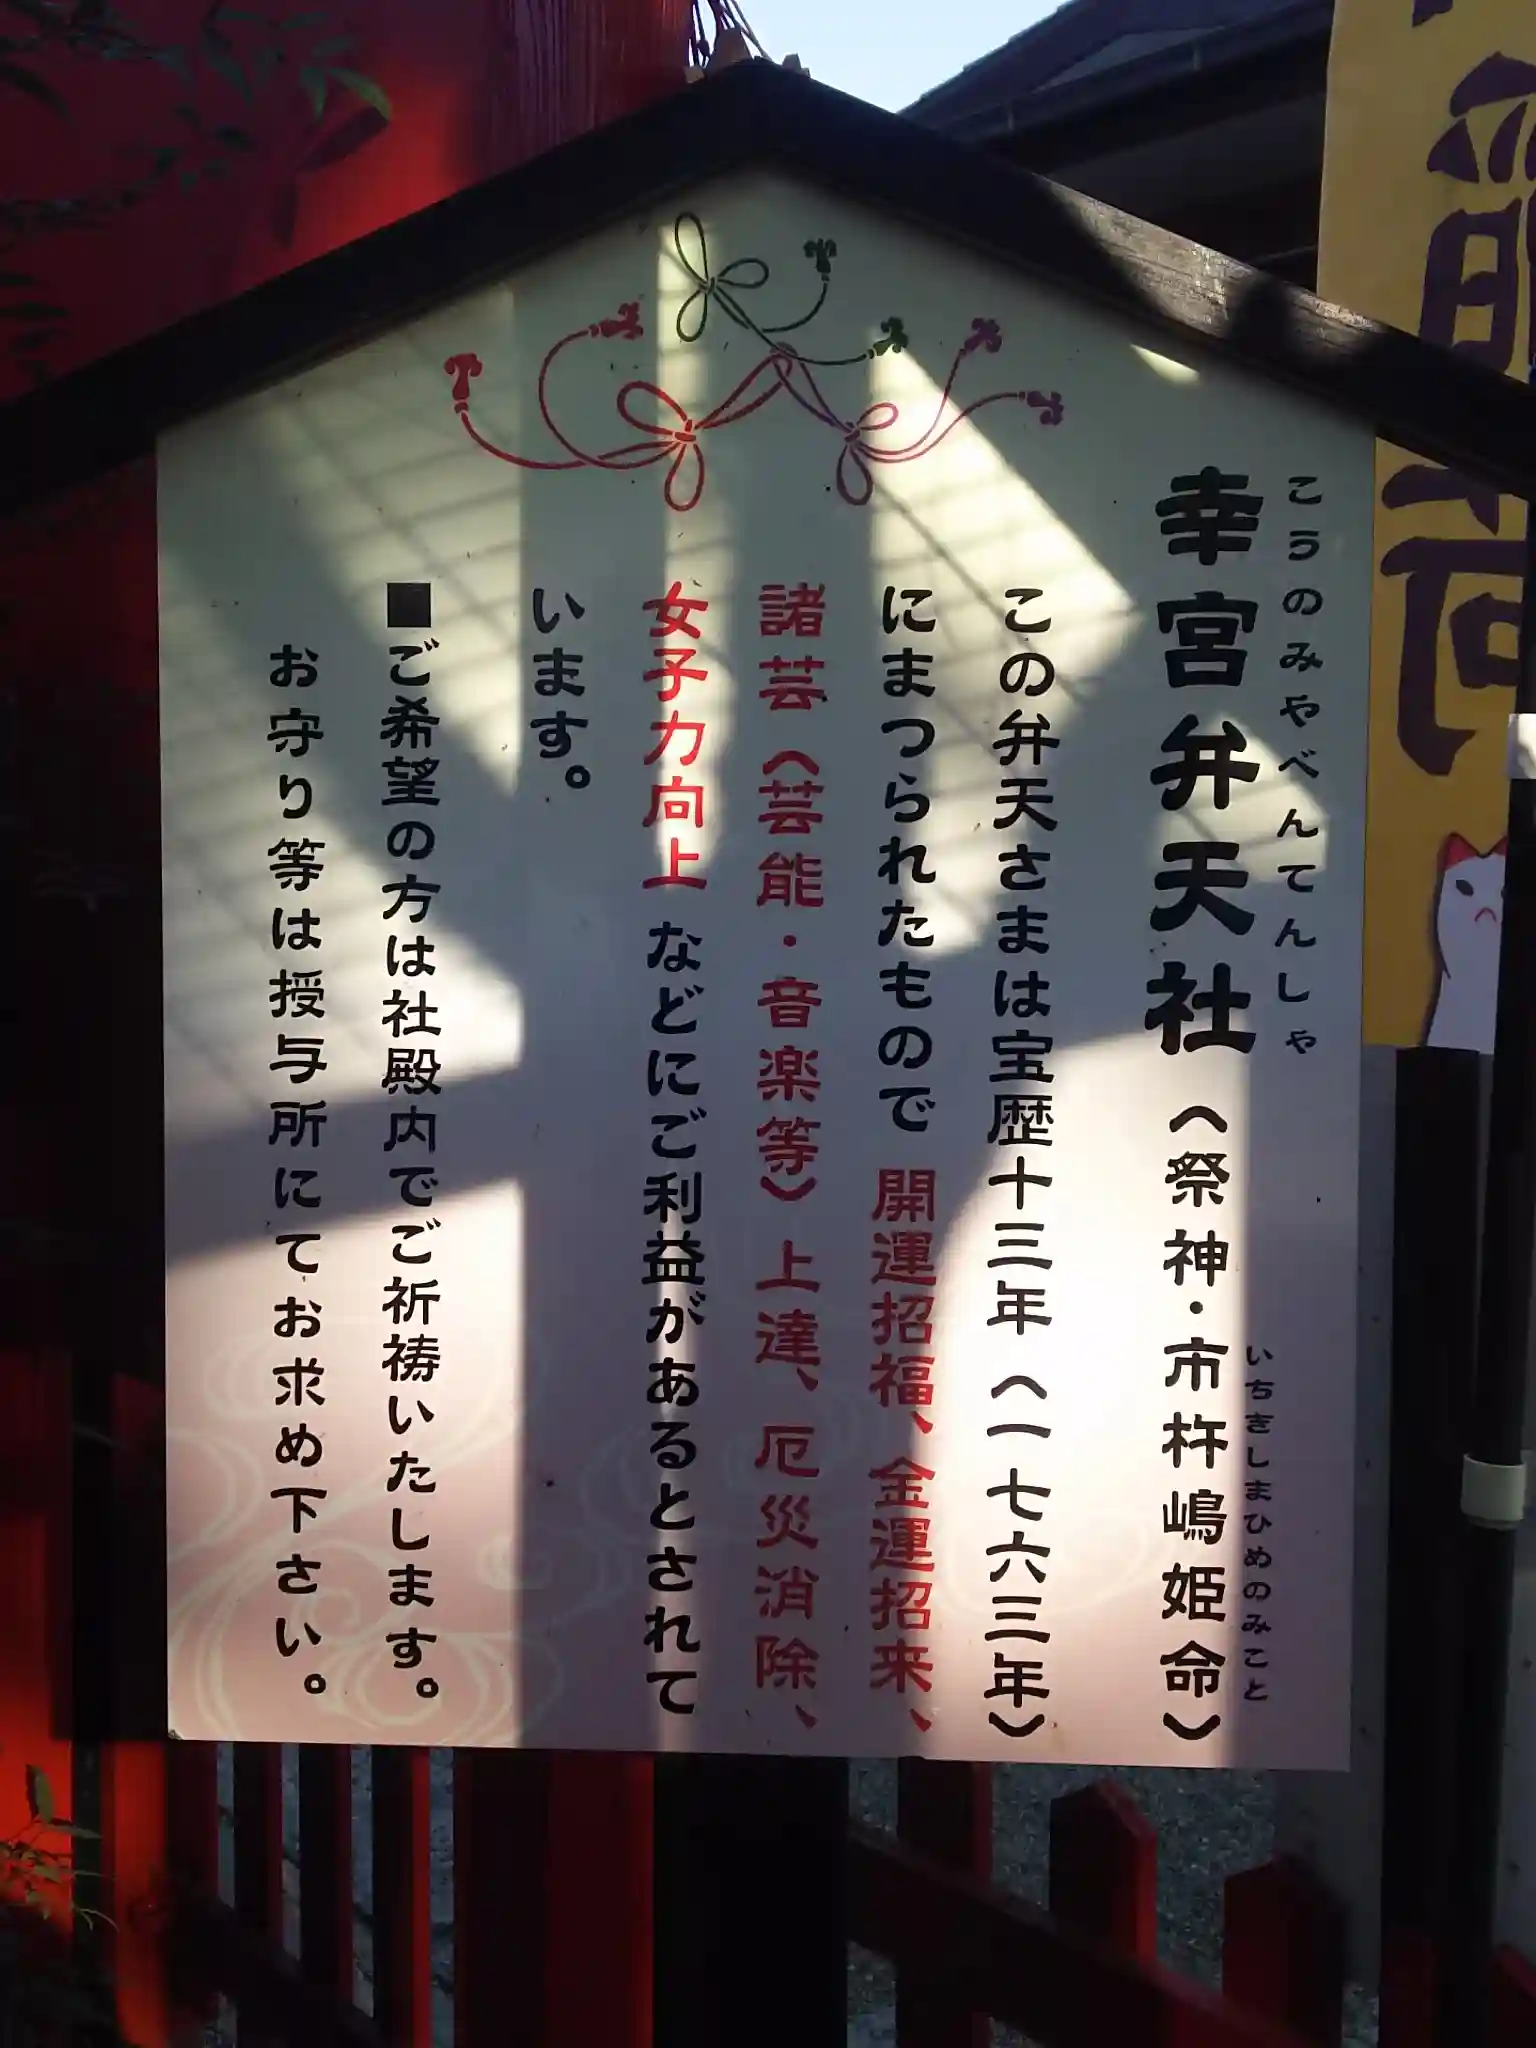 こうのみやべんてんしゃ
幸宮弁天社（祭神・市杵嶋姫命）
いちきしまひめのみこと
この弁天さまは宝歴十三年（一七六三年）
にまつられたもので 開運招福、金運招来、
諸芸（芸能・音楽等）上達、厄災消除、
女子力向上 などにご利益があるとされて
います。
■ご希望の方は社殿内でご祈祷いたします。
お守り等は授与所にてお求め下さい。